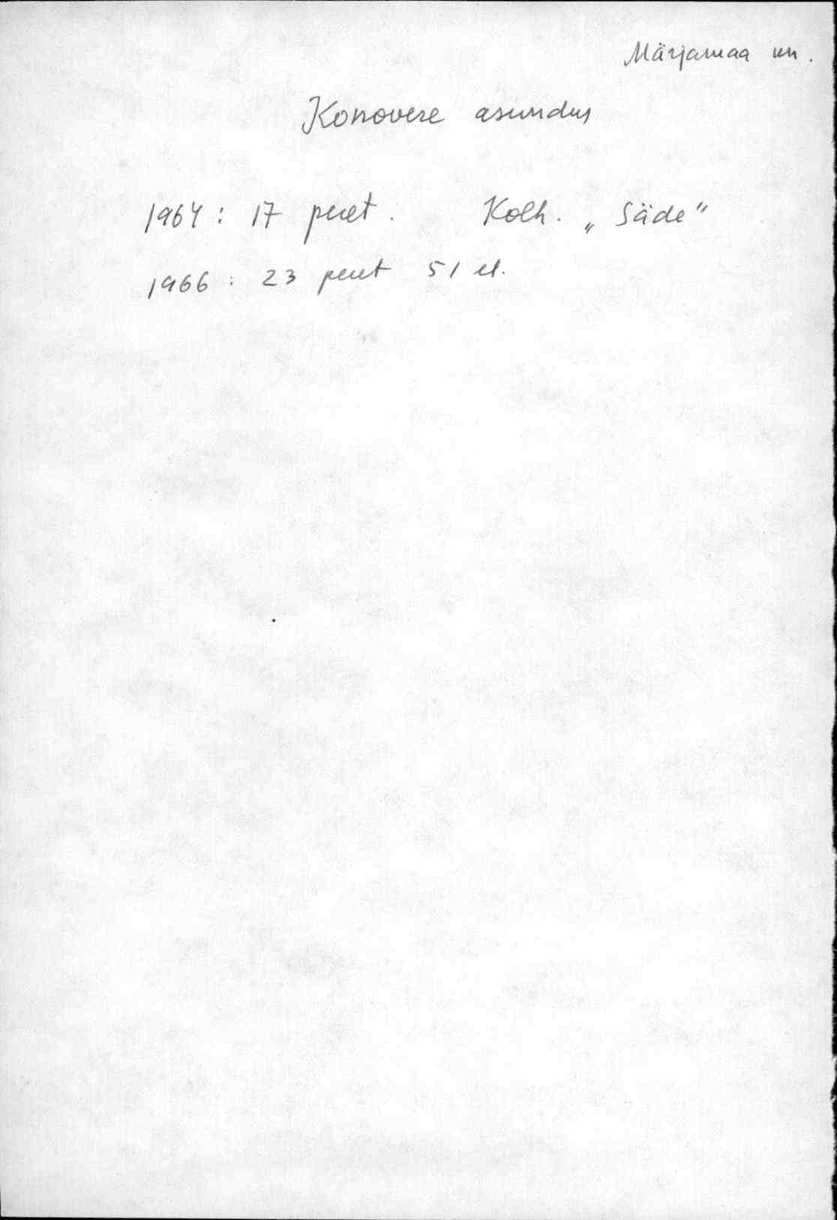 Märjamaa kn.
Konovere asundus
1964: 17 peret. Kolh. „Säde"
1966: 23 peret 51 el.